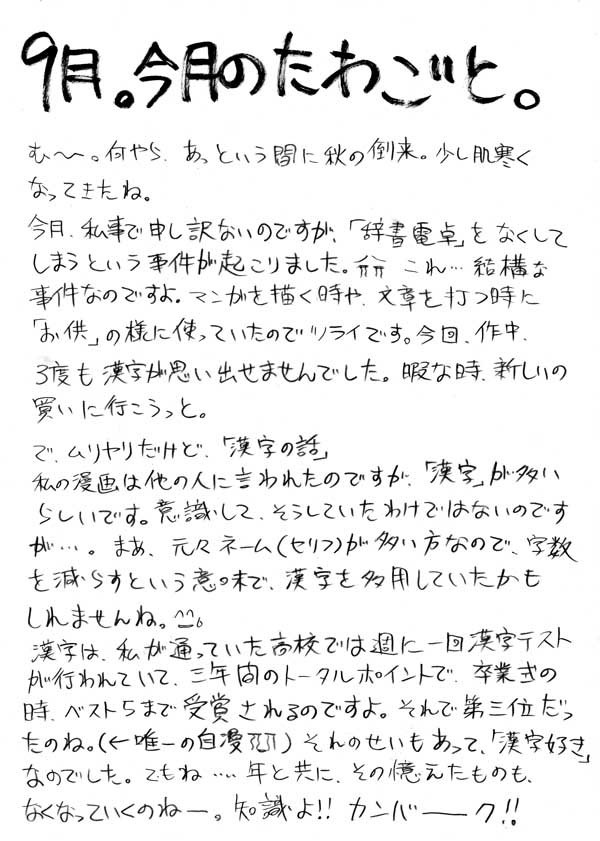 9月。今月のたわごと。
む〜〜。何やら、あっという間に秋の倒来。少し肌寒く
なってきたね。
今月、私事で申し訳ないのですが、「辞書電卓」をなくして
しまうという事件が起こりました。 これ…結構な
事件なのですよ。マンガを描く時や、文章を打つ時に
「お供」の様に使っていたのでツライです。今回、作中、
3度も漢字が思い出せませんでした。暇な時、新しいの
買いに行こうっと。
で、ムリヤリだけど、「漢字の話」
私の漫画は他の人に言われたのですが、「漢字」が多い
らしいです。意識して、そうしていたわけではないのです
が…。まあ、元々ネーム(セリフ)が多い方なので、字数
を減らすという意味で、漢字を多用していたかも
しれませんね。
漢字は、私が通っていた高校では週に一回漢字テスト
が行われていて、三年間のトータルポイントで、卒業式の
時、ベスト5まで受賞されるのですよ。それで第三位だっ
たのね。(←唯一の自慢) それのせいもあって、「漢字好き」
なのでした。でもね‥‥年と共に、その憶えたものも、
なくなっていくのねー。知識よ!! カンバーーク!!